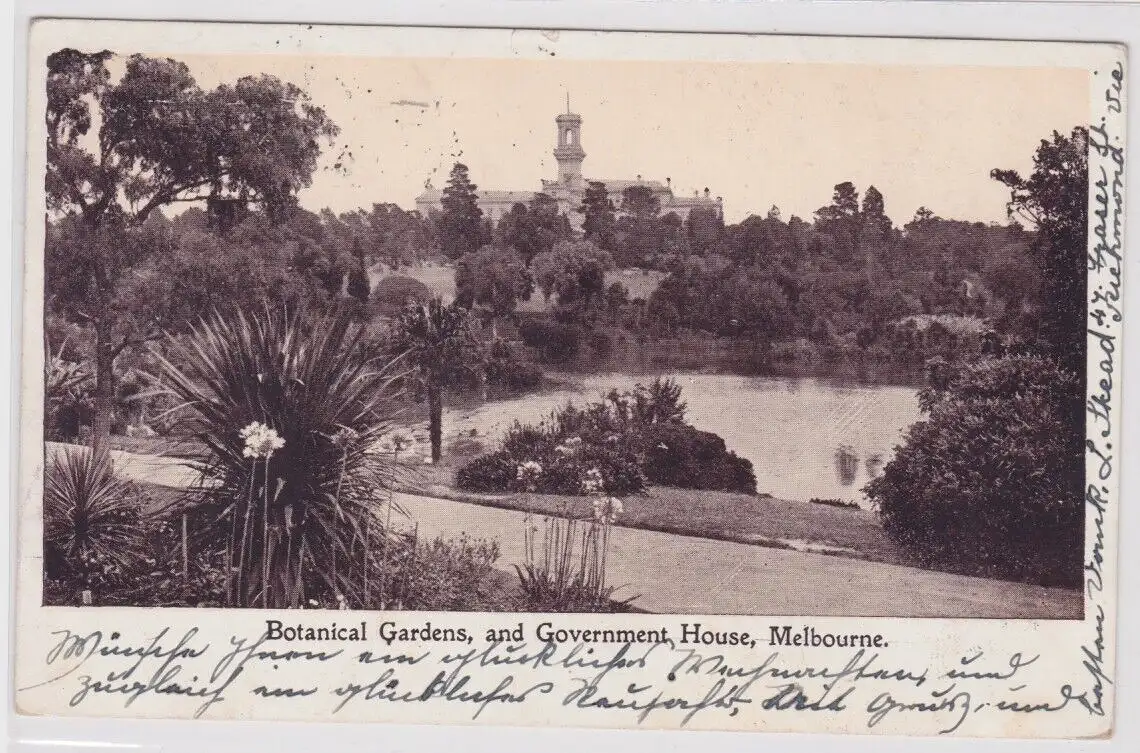 Botanical Gardens, and Government House, Melbourne.
Wünsche Ihnen ein glückliches Weihnachten, und
zugleich ein glückliches Neujahr, Mit Gruss, und
besten L. Skead. 47. Fraser St.
Richmond. Vic